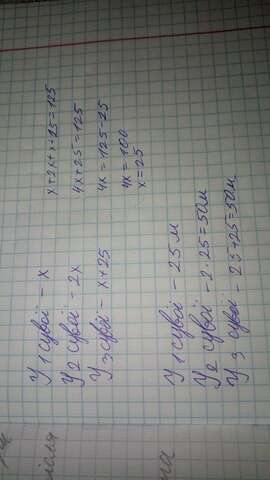 У 1 сувої - x
У 2 сувої - 2x
У 3 сувої - x+25
x+2x+x+25=125
4x+25=125
4x=125-25
4x=100
x=25
У 1 сувої - 25 м
У 2 сувої - 2·25=50м
У 3 сувої - 25+25=50м.
після
на